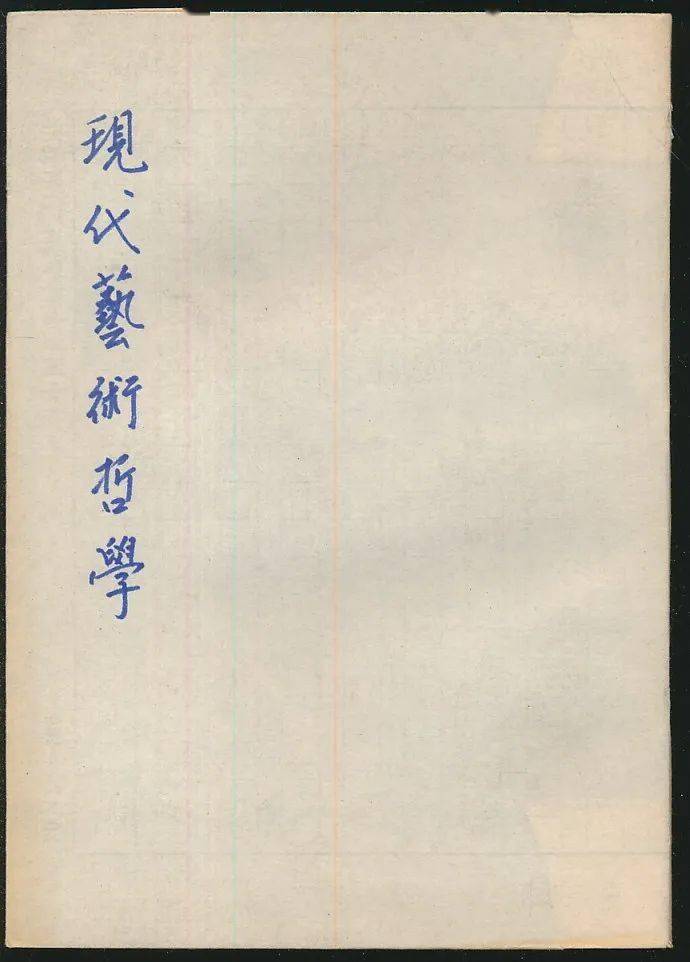 現代藝術哲學